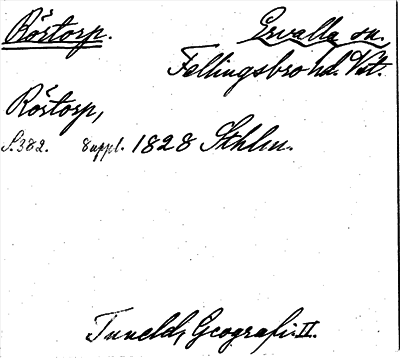 Röstorp.
Ervalla sn.
Fellingsbro hd. Vstm.
Röstorp,
S. 382. 8 uppl. 1828 Sthlm.
Tunelds Geografi II.